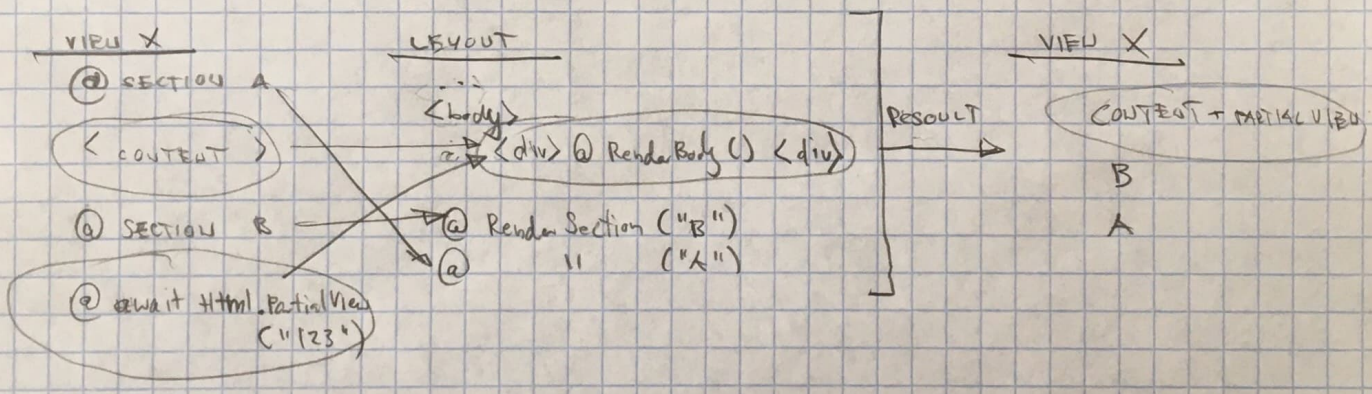 VIEW X
@ SECTION A
< CONTENT >
@ SECTION B
@ await Html.PartialView
("123")
LEYOUT
...
<body>
<div> @ RenderBody () <div>
@ Render Section ("B")
@ " ("A")
RESOULT
VIEW X
CONTENT + PARTIAL VIEW
B
A